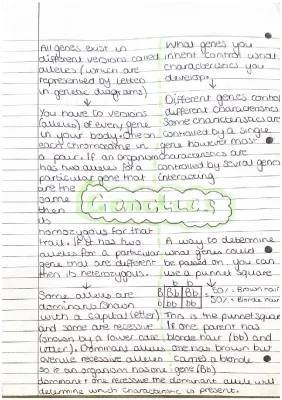 All genes exist in
different versions called
alleles (which are
represented by letters
in genetic diagrams)
You have to versions
(alleles) of every gene
in your body. One on
each chromosome in
a pair. If an organism
has two alleles for a
particular gene that
are the
same
then
its
homozygous for that
trait. If it has two
alleles for a particular
gene that are different
then its heterozygous.
Some alleles are
dominant (shown
with a capital letter)
and some are recessive
(shown by a lower case
letter). Dominant alleles
overrule recessive alleles
so if an organism has one
dominant + one recessive the dominant allele will
determine which characteristic is present.
Genetics
What genes you
inherit control what
characteristics you
develop.
Different genes control
different characteristics
Some characteristics are
controlled by a single
gene however most
characteristics are
controlled by several genes
interacting
A way to determine
what genes could
be passed on. you can
use a punnet square
b b
B Bb Bb = 50% Brown hair
b bb bb = 50% Blonde hair
This is the punnet square
If one parent has
blonde hair (bb) and
one has brown but
carries a blonde
gene (Bb)